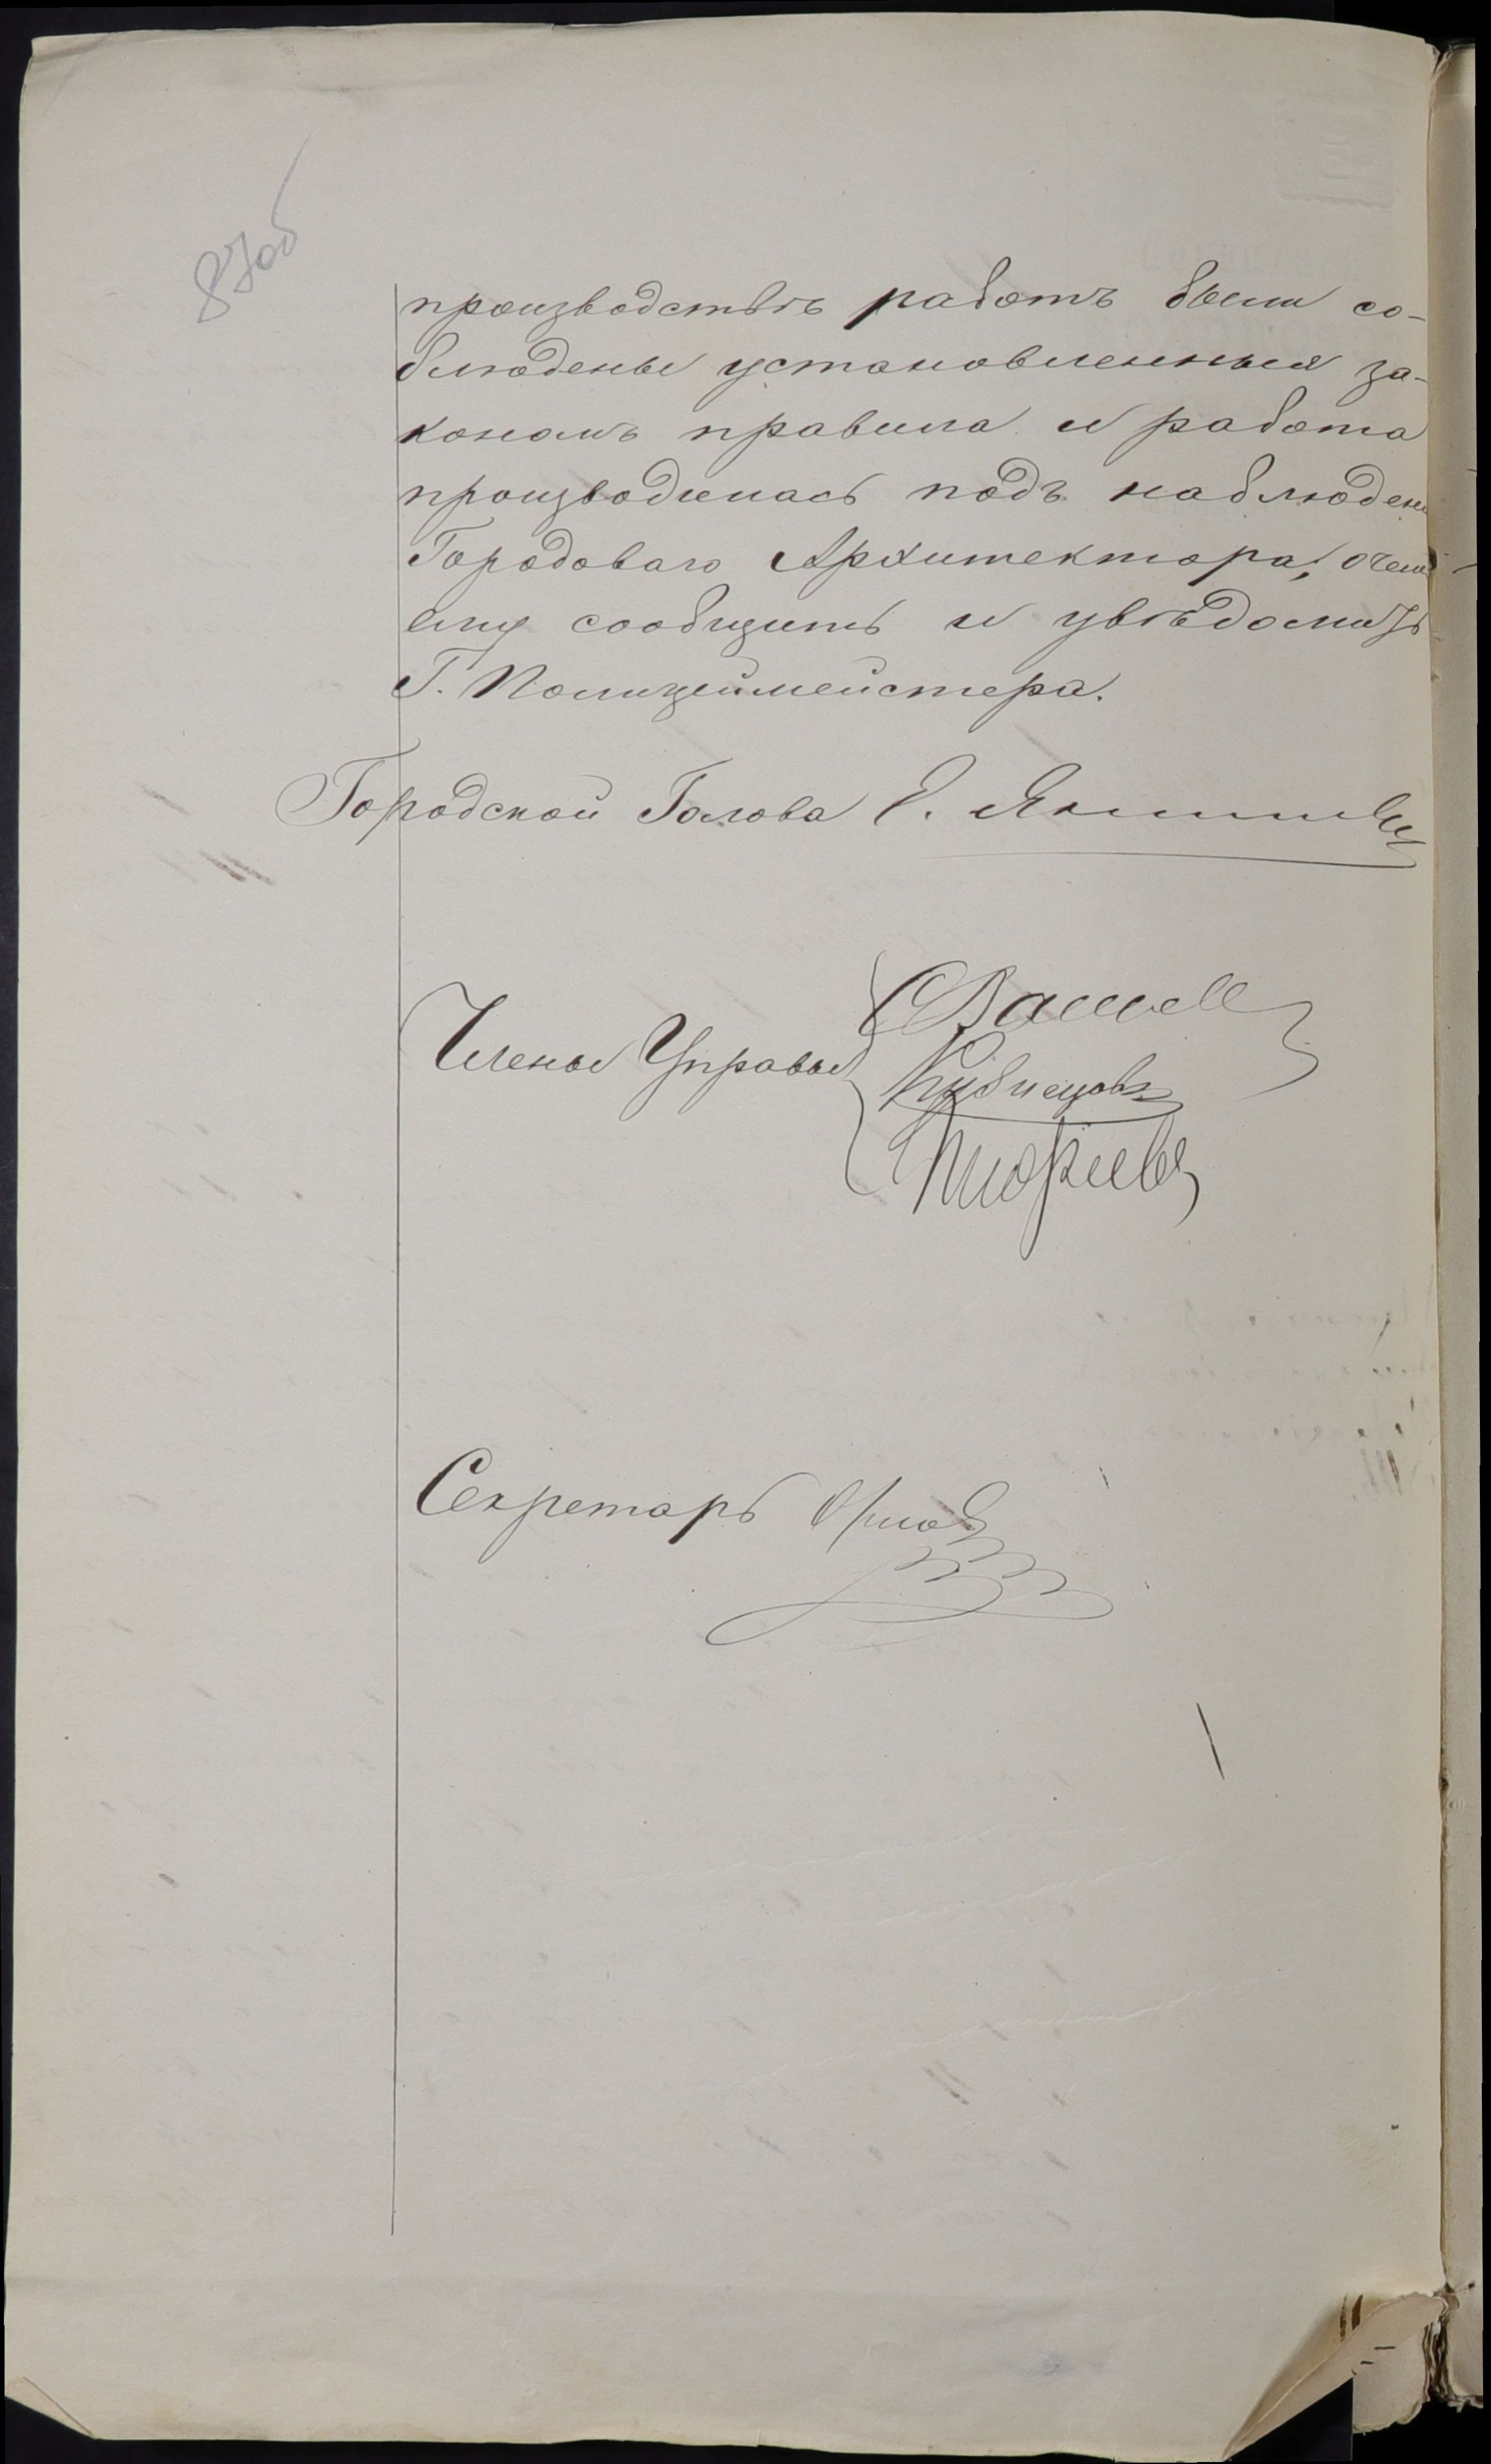 87об
производствѣ работъ были со-
блюдены установленныя за-
кономъ правила и работа
производилась подъ наблюдені
Городоваго Архитектора, о чемъ
ему сообщить и увѣдомить
Г. Полицеймейстера.
Городской Голова Э. Янишевскій
Члены Управы
Кузнецовъ
Секретарь Орловъ